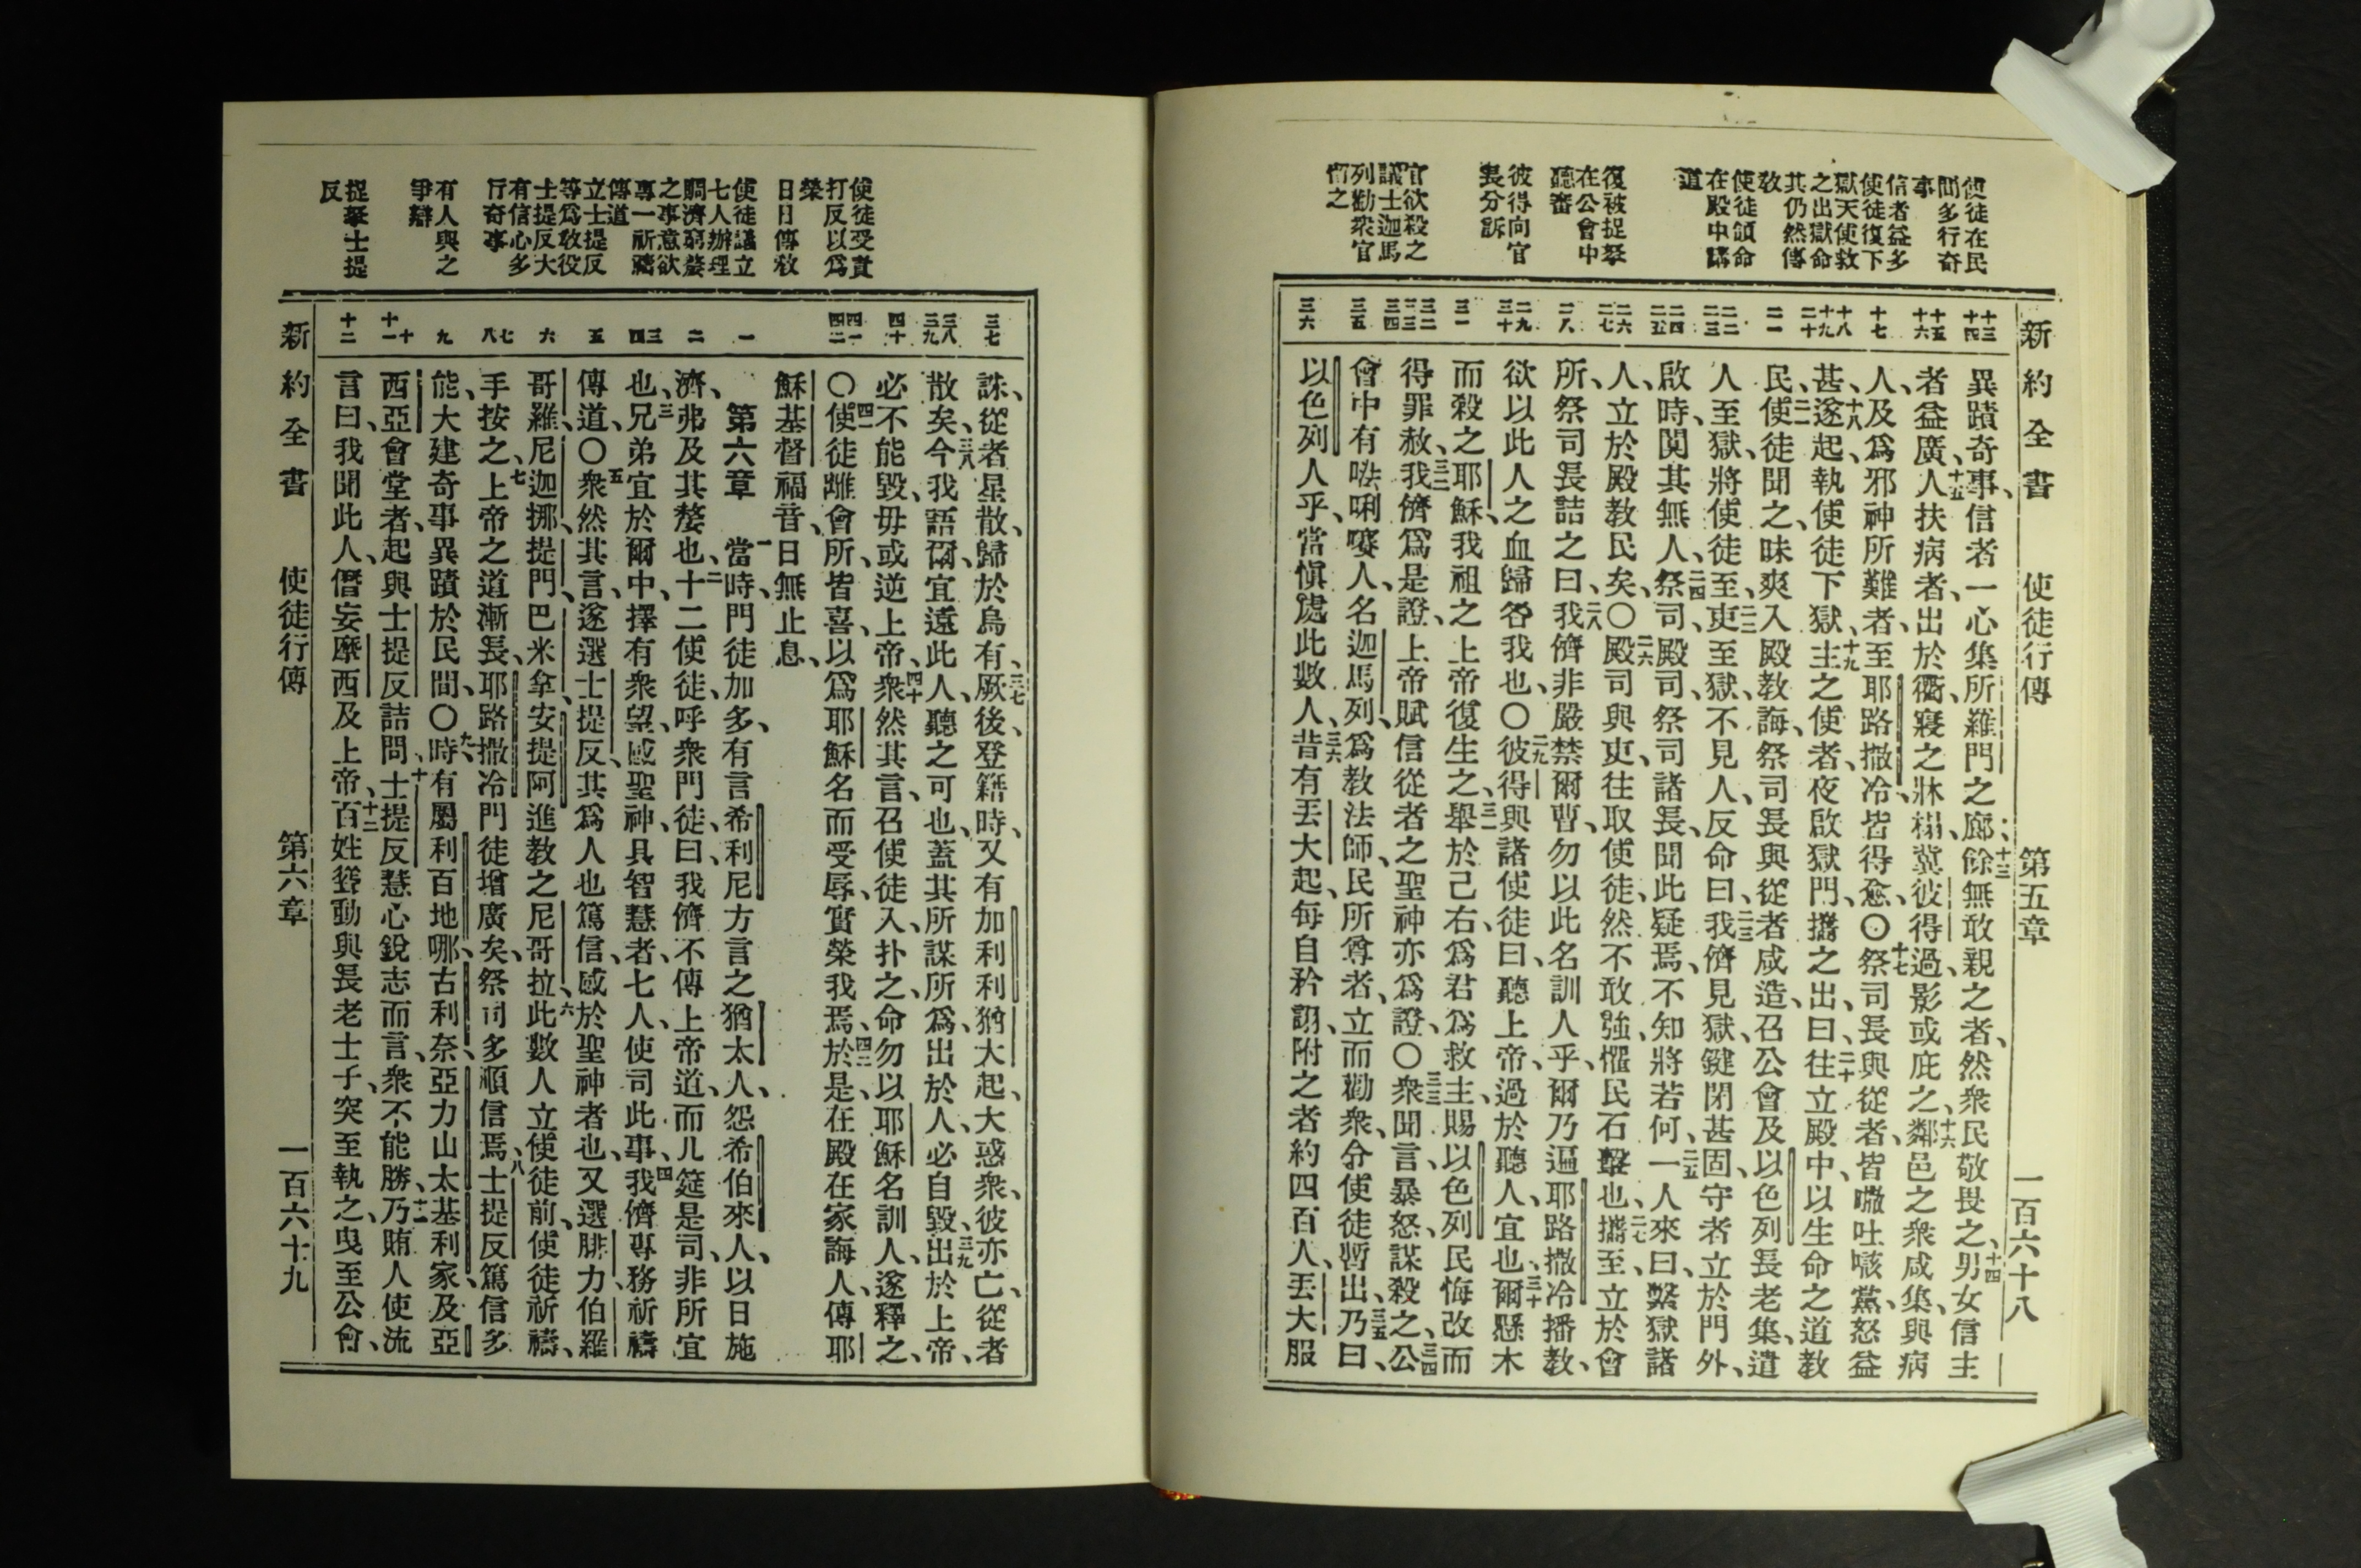 新約全書 使徒行傳 第五章 一百六十八
使徒在民
間多行奇
事
信者益多
使徒復下
獄天使救
之出獄命
其仍然傳
教
使徒領命
在殿中講
道
復被捉拏
在公會中
聽審
彼得向官
長分訴
官欲殺之
議士迦馬
列勸衆官
暫之
十三
十四
十五
十六
十七
十八
十九
二十
二一
二二
二三
二四
二五
二六
二七
二八
二九
三十
三一
三二
三三
三四
三五
三六
異蹟奇事、信者一心集所羅門之廊、十三餘無敢親之者、然衆民敬畏之、十四男女信主
者益廣、十五人扶病者、出於衢、寢之牀榻、冀彼得過、影或庇之、十六鄰邑之衆咸集、與病
人、及爲邪神所難者、至耶路撒冷、皆得愈、〇十七祭司長與從者、皆𠵽吐㗇黨、怒益
甚、十八遂起、執使徒下獄、十九主之使者、夜啟獄門、攜之出、曰、二十往立殿中、以生命之道教
民、二一使徒聞之、昧爽入殿教誨、祭司長與從者咸造、召公會及以色列長老集、遣
人至獄、將使徒至、二二吏至獄、不見人、反命曰、二三我儕見獄、鍵閉甚固、守者立於門外、
啟時、闃其無人、二四祭司、殿司、祭司諸長、聞此疑焉、不知將若何、二五一人來曰、繫獄諸
人、立於殿教民矣、〇二六殿司與吏、往取使徒、然不敢強、懼民石擊也、二七攜至、立於會
所、祭司長詰之曰、二八我儕非嚴禁爾曹、勿以此名訓人乎、爾乃遍耶路撒冷播教、
欲以此人之血歸咎我也、〇二九彼得與諸使徒曰、聽上帝、過於聽人、宜也、三十爾懸木
而殺之耶穌、我祖之上帝復生之、三一舉於己右、爲君爲救主、賜以色列民悔改而
得罪赦、三二我儕爲是證、上帝賦信從者之聖神亦爲證、〇三三衆聞言、暴怒、謀殺之、三四公
會中有𠵽唎㘔人、名迦馬列、爲教法師、民所尊者、立而勸衆、令使徒暫出、三五乃曰、
以色列人乎、當愼處此數人、三六昔有丟大起、每自矜詡、附之者約四百人、丟大服
使徒受責
打反以爲
榮
日日傳敎
使徒議立
七人辦理
賙濟窮嫠
之事意欲
專一祈禱
傳道
立士提反
等爲敎役
士提反大
有信心多
行奇事
有人與之
爭辯
捉拏士提
反
三七
三八
三九
四十
四一
四二
一
二
三
四
五
六
七
八
九
十
十一
十二
誅、從者星散、歸於烏有、三七厥後、登籍時、又有加利利猶大起、大惑衆、彼亦亡、從者
散矣、三八今我語爾、宜遠此人、聽之可也、蓋其所謀所爲、出於人、必自毀、三九出於上帝、
必不能毀、毋或逆上帝、四十衆然其言、召使徒入扑之、命勿以耶穌名訓人、遂釋之、
〇四一使徒離會所、皆喜、以爲耶穌名而受辱、實榮我焉、四二於是、在殿在家誨人、傳耶
穌基督福音、日無止息、
第六章 一當時、門徒加多、有言希利尼方言之猶太人、怨希伯來人、以日施
濟、弗及其嫠也、二十二使徒、呼衆門徒、曰、我儕不傳上帝道、而几筵是司、非所宜
也、三兄弟宜於爾中、擇有衆望、感聖神、具智慧者、七人、使司此事、四我儕專務祈禱
傳道、〇五衆然其言、遂選士提反、其爲人也、篤信、感於聖神者也、又選腓力、伯羅
哥羅、尼迦挪、提門、巴米拿、安提阿進教之尼哥拉、六此數人立使徒前、使徒祈禱、
手按之、七上帝之道漸長、耶路撒冷門徒增廣矣、祭司多順信焉、八士提反篤信多
能、大建奇事異蹟於民間、〇九時有屬利百地哪、古利奈、亞力山太、基利家、及亞
西亞會堂者、起與士提反詰問、十士提反慧心銳志而言、衆不能勝、十一乃賄人使流
言曰、我聞此人、僭妄摩西及上帝、十二百姓聳動、與長老士子、突至執之、曳至公會、
新約全書 使徒行傳 第六章 一百六十九